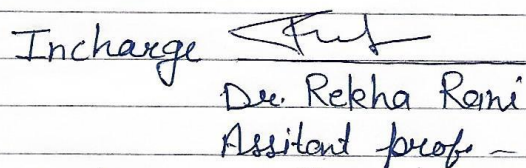 Incharge
Dr. Rekha Rani
Assitant prof. -